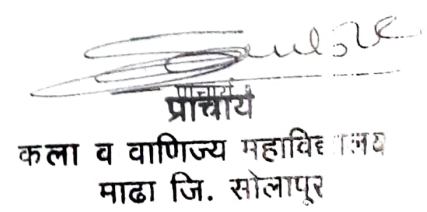 प्राचार्य
कला व वाणिज्य महाविद्यालय
माढा जि. सोलापूर